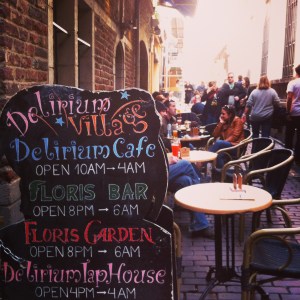 Delirium
Village
Delirium Cafe
OPEN 10AM → 4AM
FLORIS BAR
OPEN 8PM → 6AM
FLORIS GARDEN
OPEN 8PM → 6AM
Delirium Taphouse
OPEN 4PM → 4AM